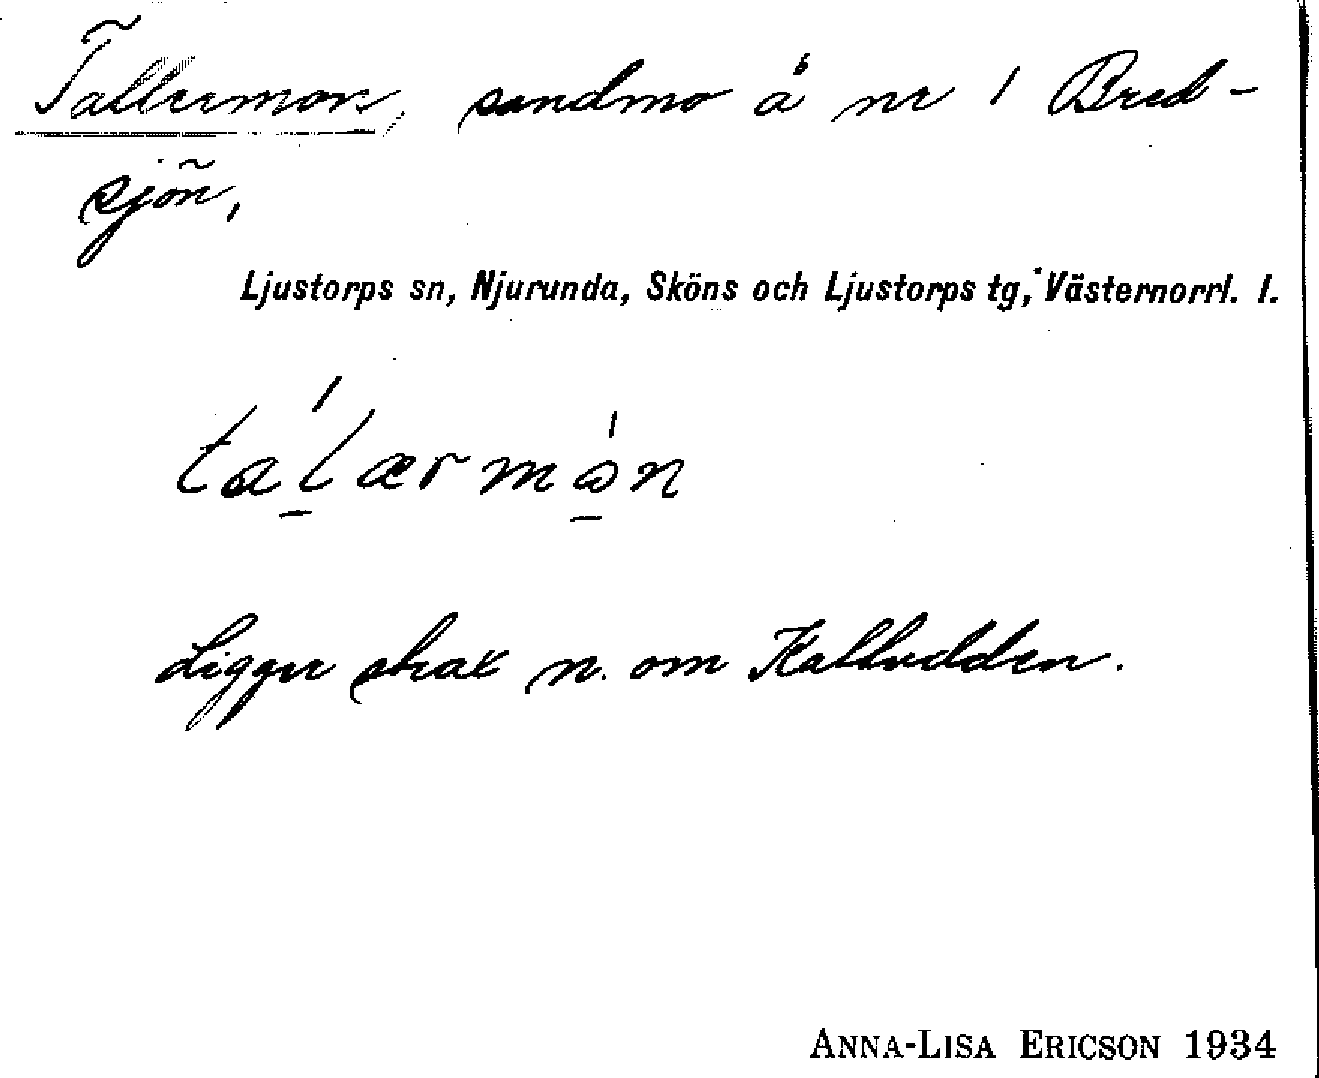 Tallermon, sandmo å nr 1 Bred-
sjön,
Ljustorps sn, Njurunda, Sköns och Ljustorps tg, Västernorrl. l.
Ligger strax n. om Kalludden.
ANNA-LISA ERICSON 1934